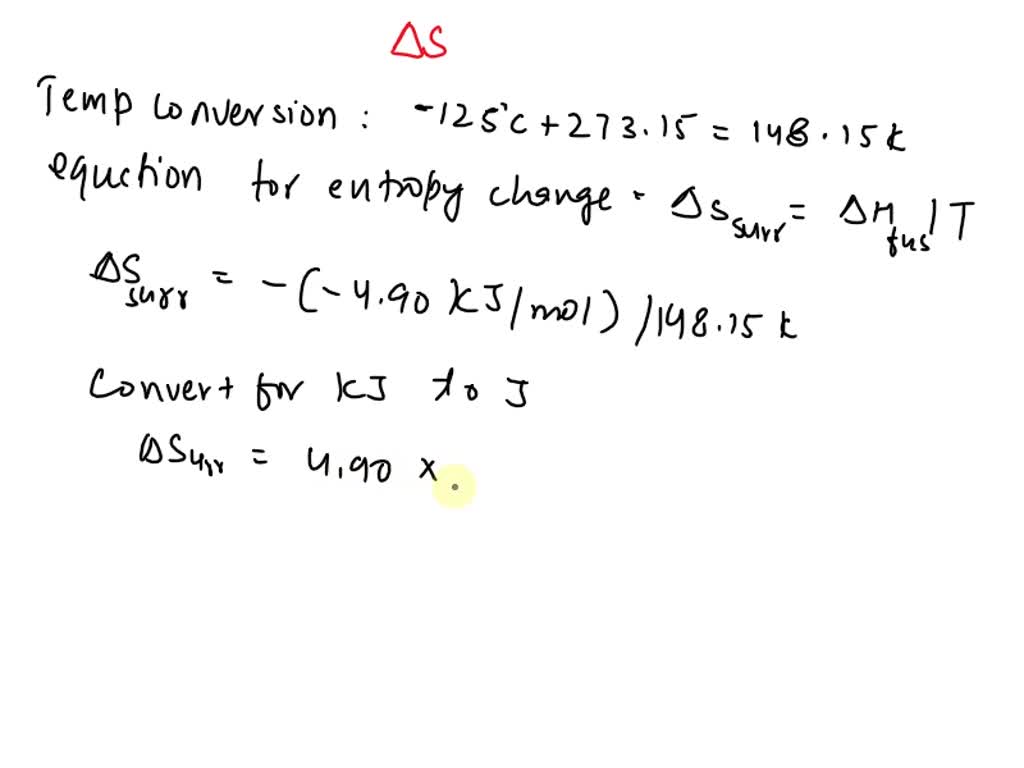 ΔS
Temp conversion : -125°C + 273.15 = 148.15 k
equction for entropy change - ΔS surr = ΔH fus / T
ΔS surr = - (-4.90 KJ/mol) / 148.15 k
Convert for KJ to J
ΔSurr = 4.90 ×